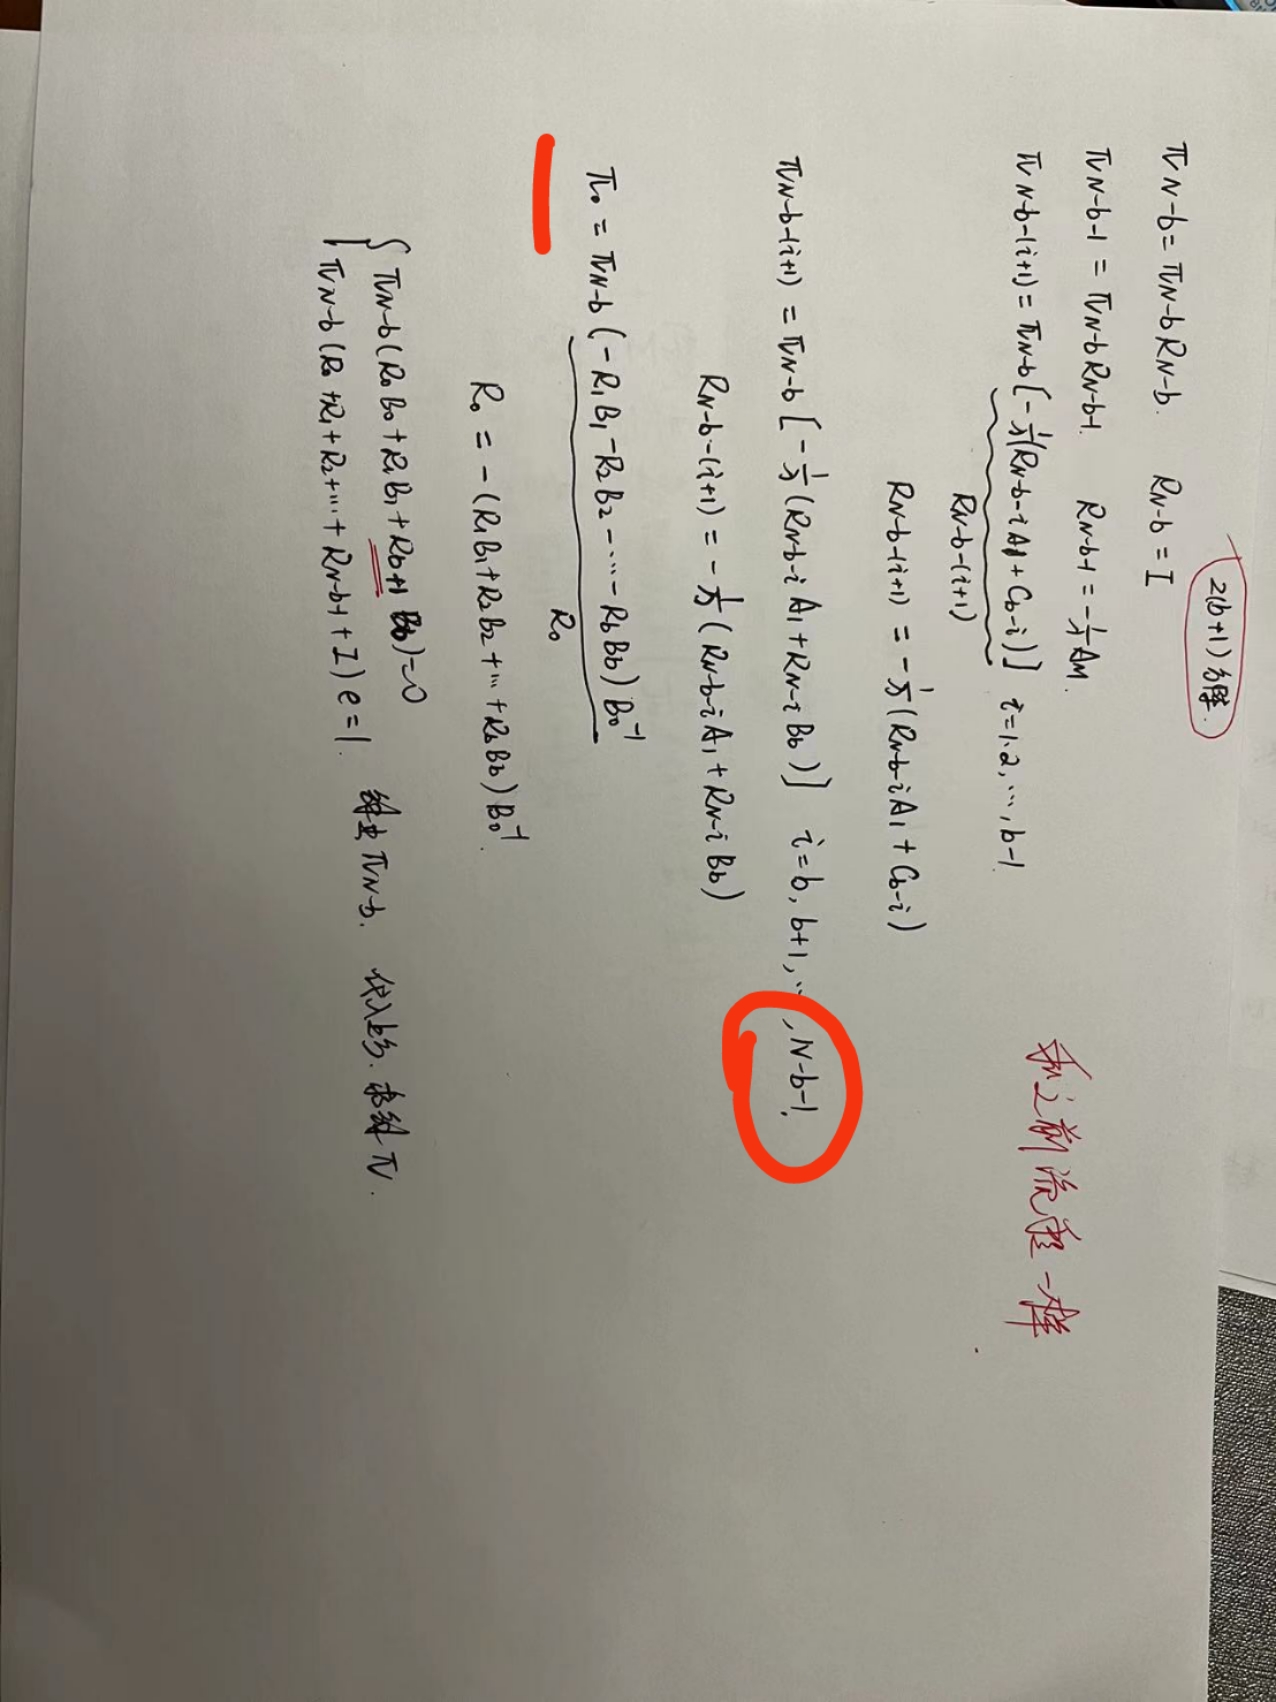 2(b+1)方阵.
π_{N-b} = π_{N-b} R_{N-b}. R_{N-b} = I
π_{N-b-1} = π_{N-b} R_{N-b-1}. R_{N-b-1} = -\frac{1}{λ} A_M.
π_{N-b-(i+1)} = π_{N-b} [-\frac{1}{λ}(R_{N-b-i} A_1 + C_{b-i})] i=1,2,…,b-1
R_{N-b-(i+1)}
R_{N-b-(i+1)} = -\frac{1}{λ}(R_{N-b-i} A_1 + C_{b-i})
和之前流程一样
π_{N-b-(i+1)} = π_{N-b} [-\frac{1}{λ}(R_{N-b-i} A_1 + R_{N-i} B_b)] i=b, b+1, …, N-b-1.
R_{N-b-(i+1)} = -\frac{1}{λ}(R_{N-b-i} A_1 + R_{N-i} B_b)
π_0 = π_{N-b} (-R_1 B_1 - R_2 B_2 - … - R_b B_b) B_0^{-1}
R_0
R_0 = -(R_1 B_1 + R_2 B_2 + … + R_b B_b) B_0^{-1}.
{ π_{N-b} (R_0 B_0 + R_1 B_1 + R_{b+1} B_b) = 0
π_{N-b} (R_0 + R_1 + R_2 + … + R_{N-b-1} + I) e = 1. 解出 π_{N-b}. 代入上式. 求解 π.